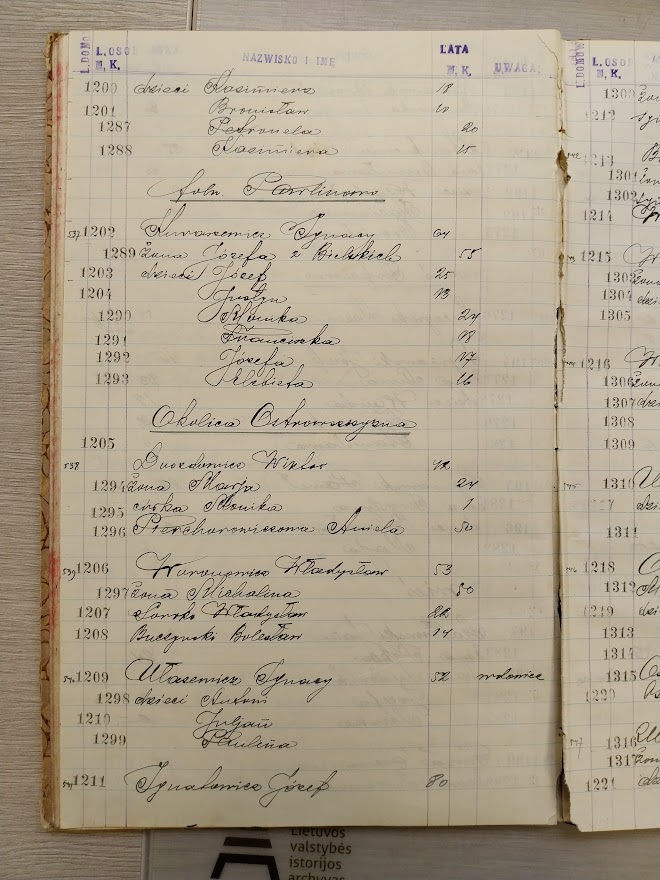 L.DOMÓW L. OSOB M. K. NAZWISKO I IMĘ LATA M. K. UWAGA.
1200 dzieci Kazimierz 18
1201 Bronisław 10
1287 Petronela 20
1288 Kazimiera 15
folw. Pawlinowo
537 1202 Ignacy 64
1289 Żona Józefa z Bielskich 55
1203 dzieci Józef 25
1204 Justyn 13
1290 Monika 24
1291 Franciszka 18
1292 Józefa 17
1293 Elżbieta 16
Okolica Ostrowszczyzna
1205
538 Wiktor 42
1294 Żona Marja 24
1295 córka Monika 1
1296 Aniela 50
539 1206 Woronowicz Władysław 53
1297 Żona Michalina 50
1207 Władysław 22
1208 Buczyński Bolesław 14
540 1209 Ułasewicz Ignacy 52 wdowiec
1298 dzieci Antoni
1210 Juljan
1299 Paulina
541 1211 Ignatowicz Józef 80
L.DOMÓW L. OSOB M. K.
1300
1212
1213
1301
1302
1214
1215
1303
1304
1305
1216
1306
1307
1308
1309
1310
1311
1218
1312
1219
1313
1314
1315
1220
1316
1317
1221
Lietuvos
valstybės
istorijos
archyvas